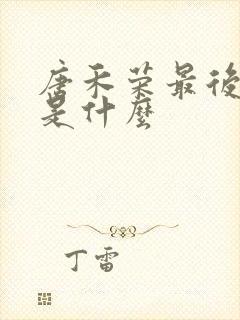 唐禾荣最後
是什麼
丁雷